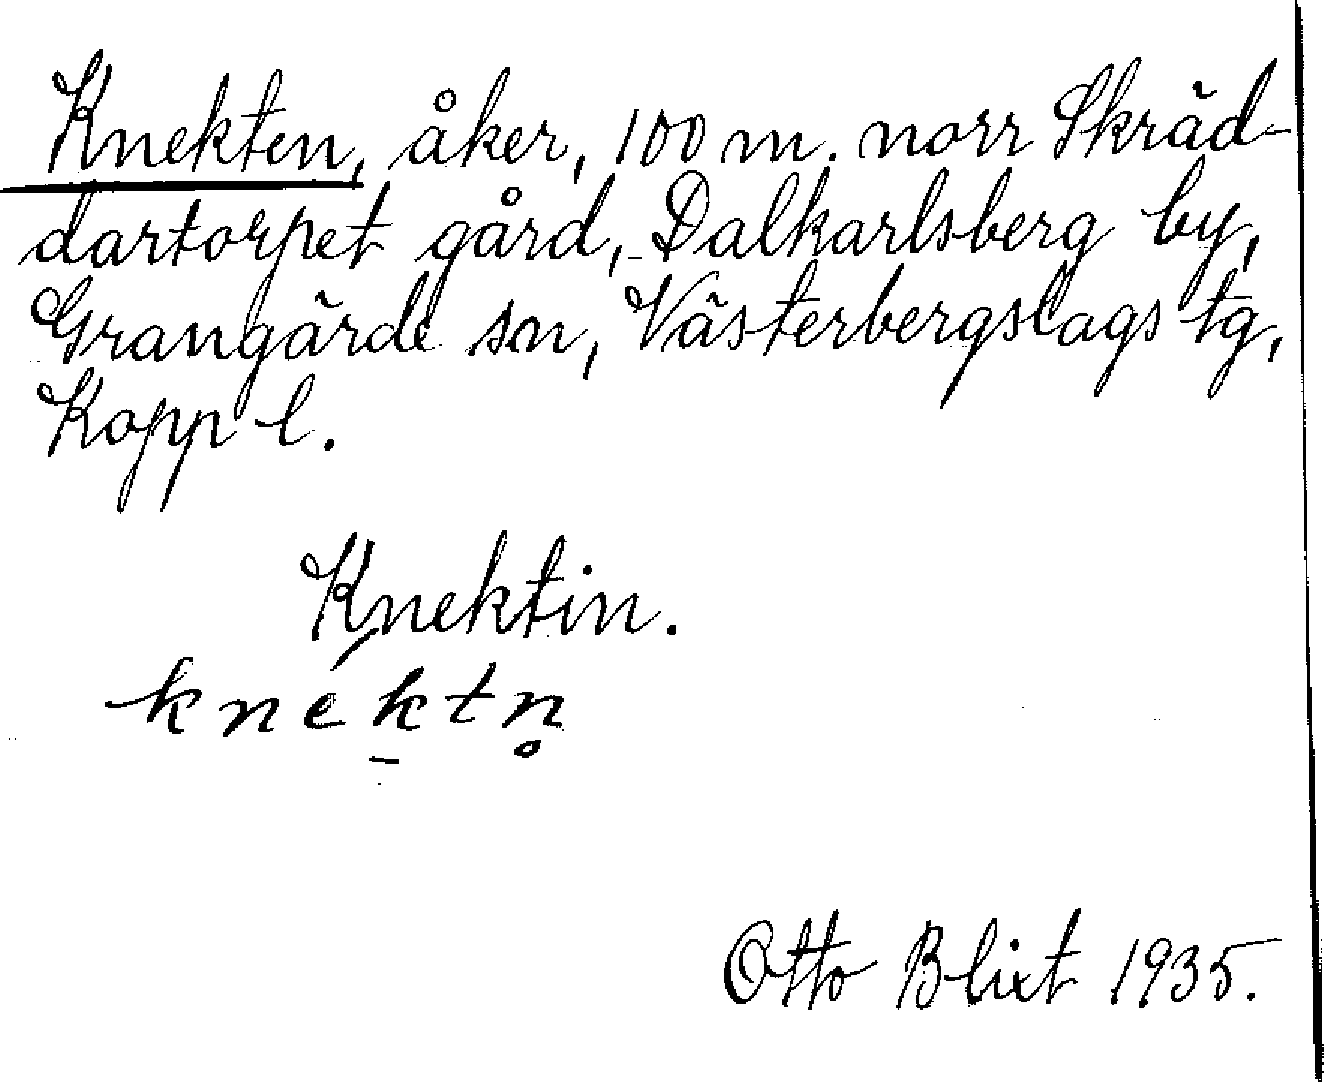 Knekten, åker, 100 m. norr Skräd-
dartorpet gård, Dalkarlsberg by,
Grangärde sn, Västerbergslags tg,
Kopp l.
Knektin.
knék̠tn̥
Otto Blixt 1935.